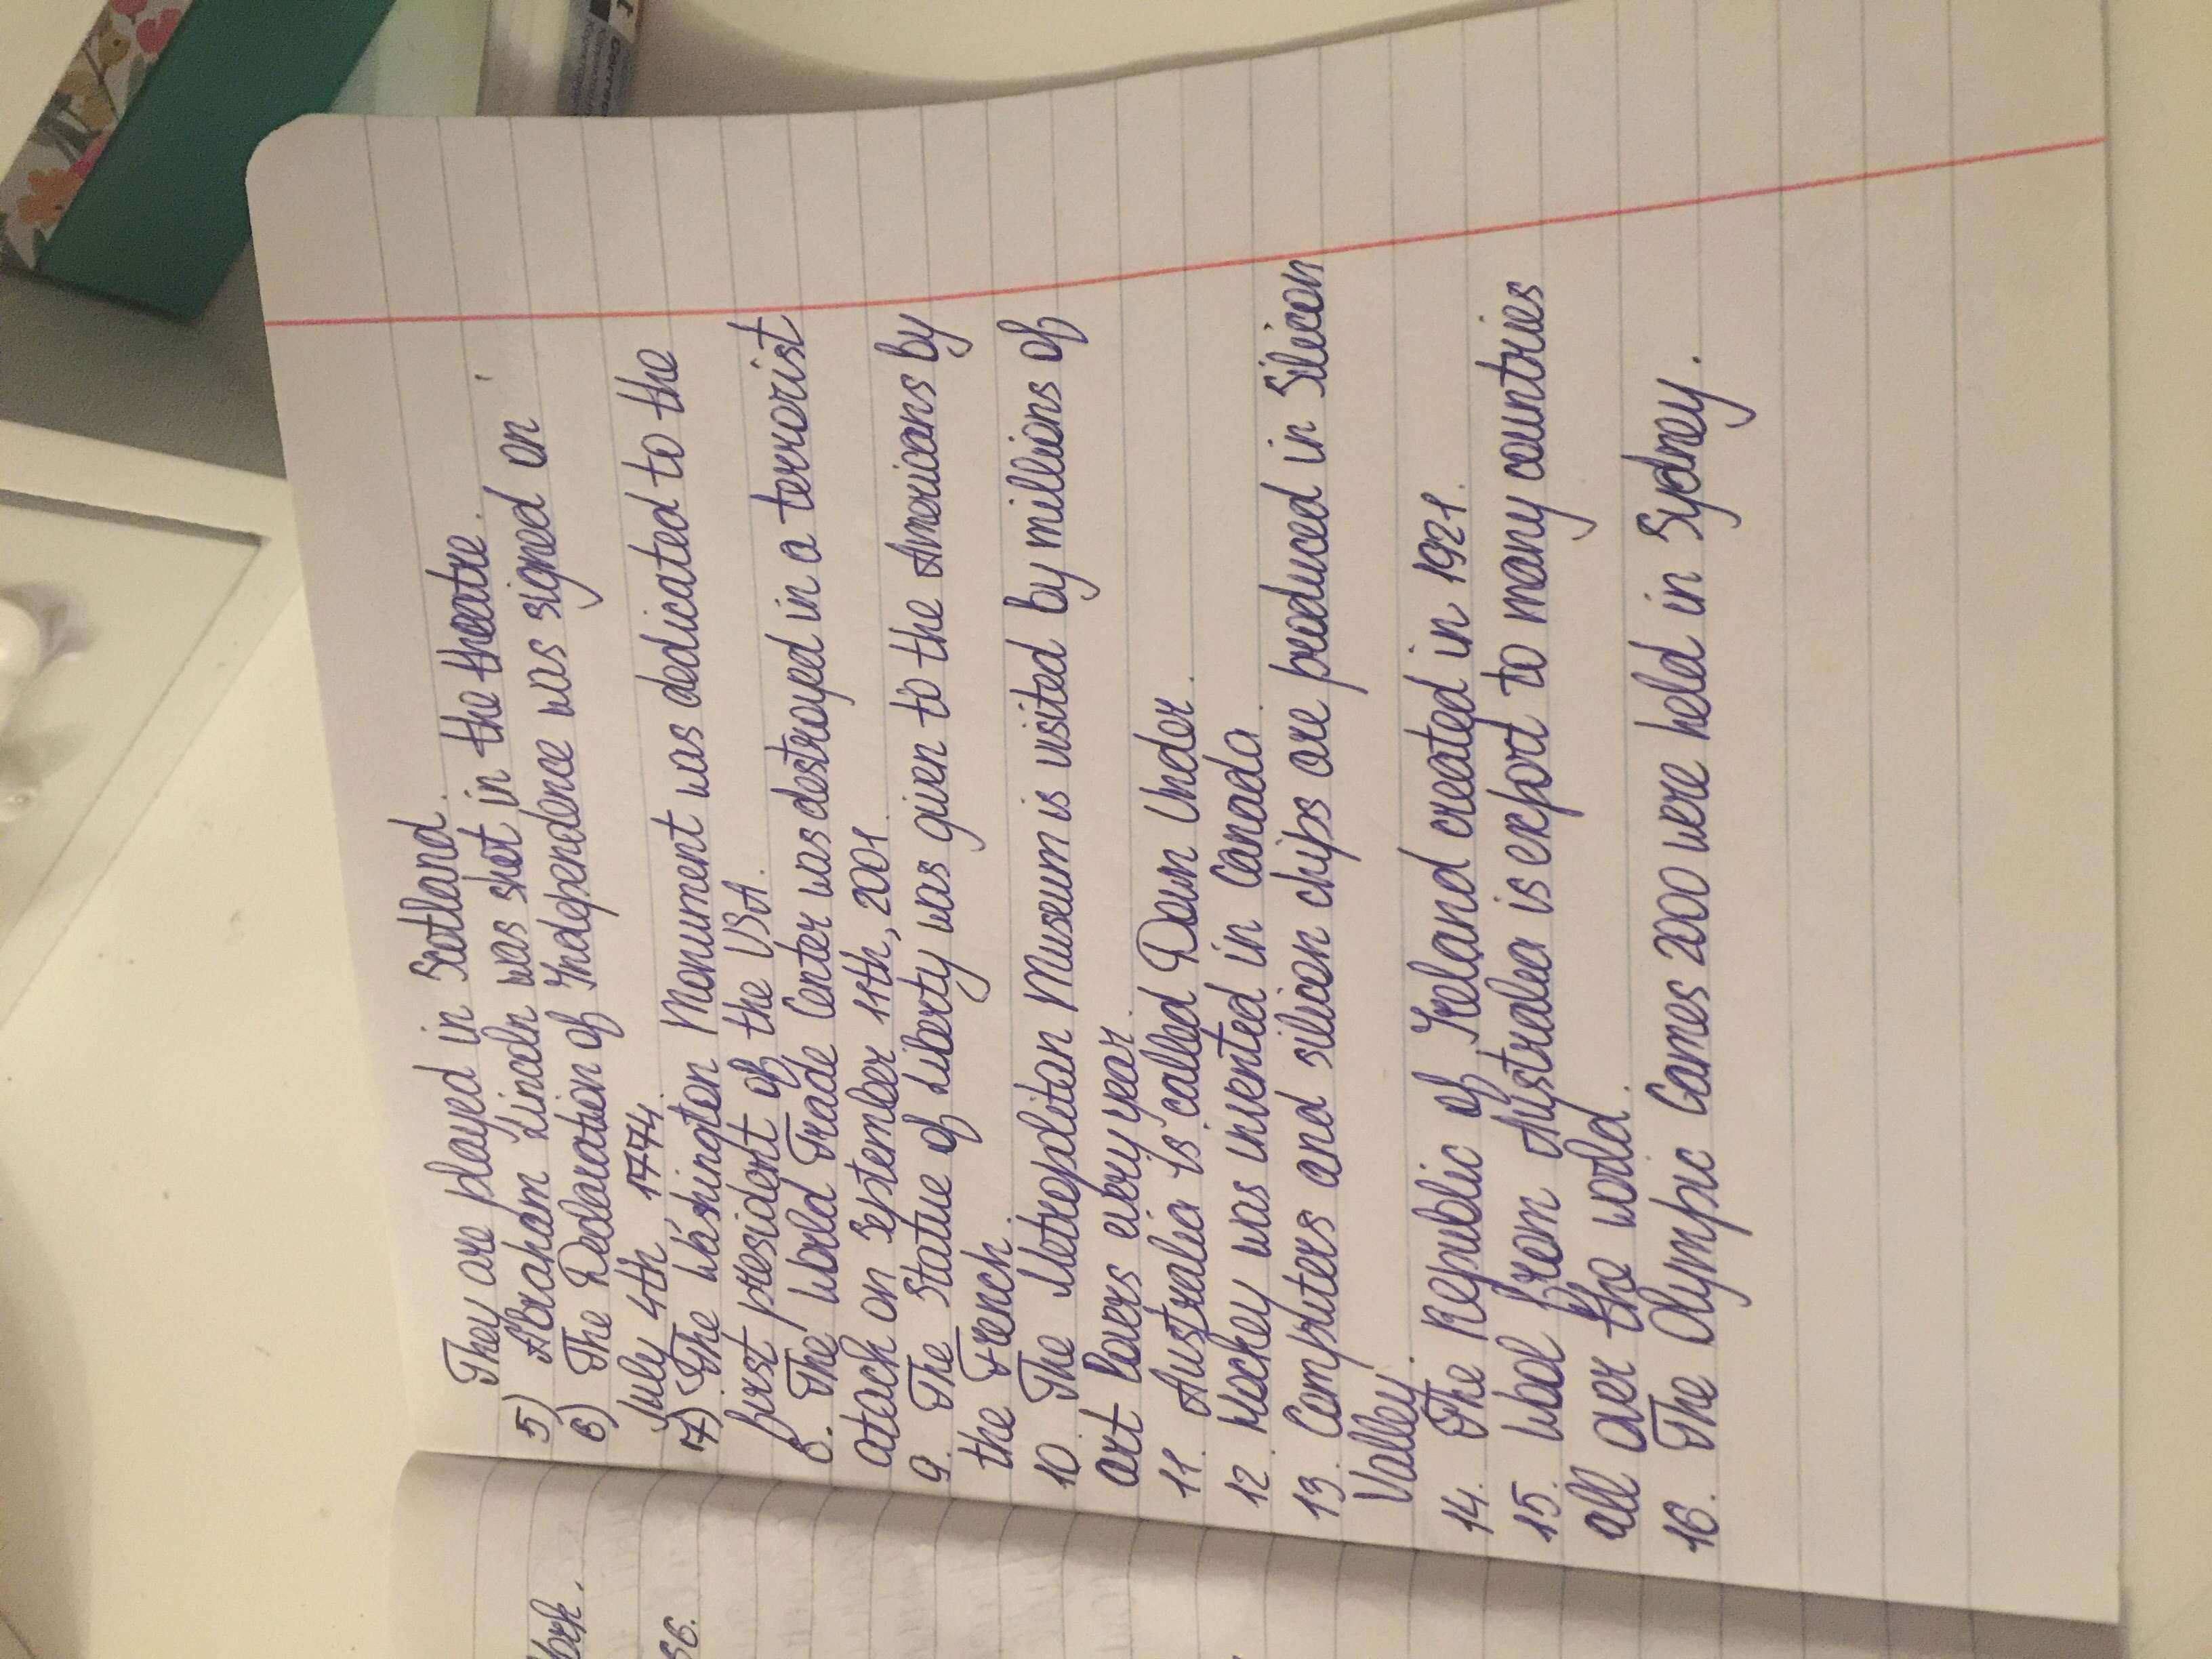 They are played in Scotland.
5) Abraham Lincoln was shot in the theatre.
6) The Declaration of Independence was signed on
July 4th 1774.
7) The Washington Monument was dedicated to the
first president of the USA.
8. The World Trade Center was destroyed in a terrorist
atack on September 11th, 2001.
9. The Statue of Liberty was given to the Americans by
the French.
10. The Metropolitan Museum is visited by millions of
art lovers every year.
11. Australia is called Down Under.
12. Hockey was invented in Canada.
13. Computers and silicon chips are produced in Silicon
Valley.
14. The Republic of Ireland created in 1921.
15. Wool from Australia is export to many countries
all over the world.
16. The Olympic Games 2000 were held in Sydney.